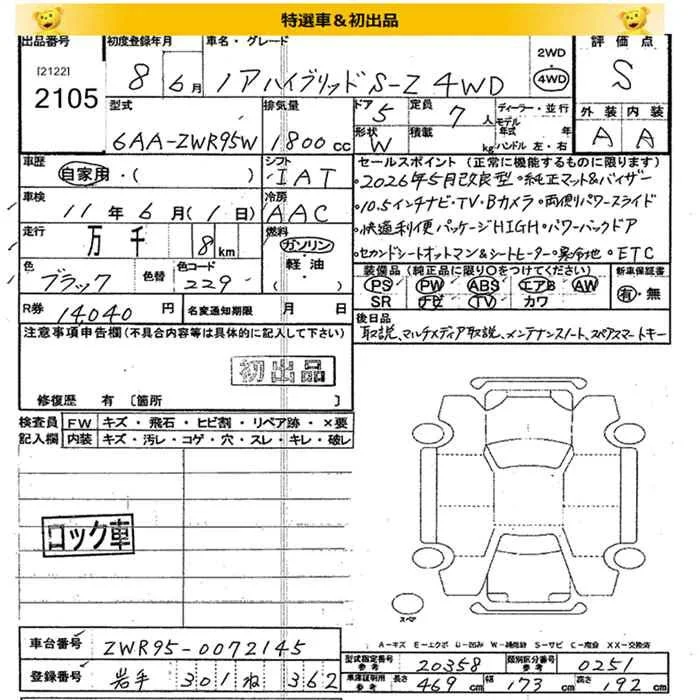 特選車&初出品
出品番号
初度登録年月
車名・グレード
評価点
[2122]
2105
8 6月
ノアハイブリッドS-Z 4WD
2WD
4WD
S
型式
排気量
ドア
5
定員
7人
ディーラー・並行
外装 内装
6AA-ZWR95W
1800cc
形状
W
積載
kg
モデル年式 年
ハンドル 左・右
A A
車歴
自家用・( )
シフト
IAT
セールスポイント (正常に機能するものに限ります)
・2026年5月改良型・純正マット&バイザー
車検
11年6月(1日)
冷房
AAC
・10.5インチナビ・TV・Bカメラ・両側パワースライド
走行
万 千 8km
燃料
ガソリン
軽・油
( )
・快適利便パッケージHIGH・パワーバックドア
・セカンドシートオットマン&シートヒーター・寒冷地・ETC
色
ブラック
色替
色コード
229
装備品 (純正品に限り○をつけてください)
新車保証書
PS PW ABS エアB AW
有・無
SR ナビ TV カワ
R券
14040円
名変通知期限 月 日
後日品
取説、マルチメディア取説、メンテナンスノート、スペアスマートキー
注意事項申告欄 (不具合内容等は具体的に記入して下さい)
初出品
修復歴 有 〔箇所 〕
検査員記入欄
FW キズ・飛石・ヒビ割・リペア跡・×要
内装 キズ・汚レ・コゲ・穴・スレ・キレ・破レ
ロック車
スペア
A-キズ E-エクボ U-凹み W-補修跡 S-サビ C-腐蝕 XX-交換済
車台番号
ZWR95-0072145
型式指定番号
参考
20358
類別区分番号
参考
0251
登録番号
岩手 301 ね 362
車庫証明用
参考
長さ
469cm
幅
173cm
高さ
192cm